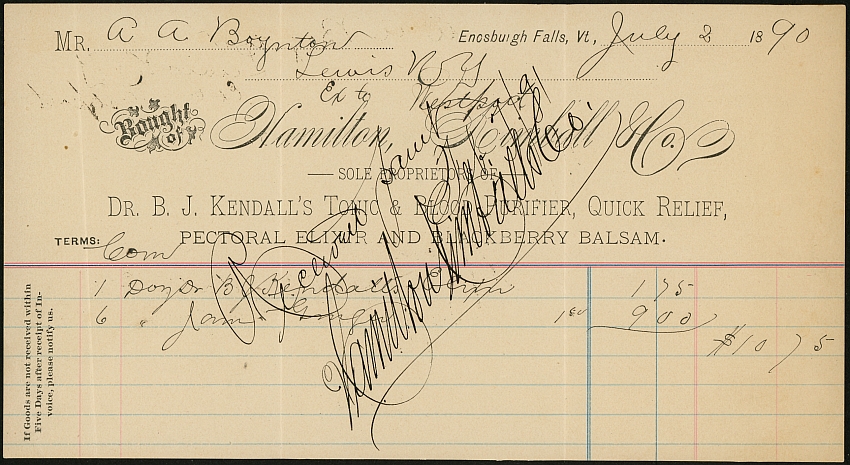 Mr. A A Boynton Enosburgh Falls, Vt., July 2 1890
Lewis N Y
Ex to Westport
Bought of Hamilton, Kimball & Co.
SOLE PROPRIETORS OF
DR. B. J. KENDALL'S TONIC & BLOOD PURIFIER, QUICK RELIEF,
TERMS: Com PECTORAL ELIXIR AND BLACKBERRY BALSAM.
1 Doz Dr B J Kendalls 1 75
6 " Jam Ginger 1 50 9 00
$10 75
Received
Hamilton Kimball & Co.
If Goods are not received within
Five Days after receipt of In-
voice, please notify us.